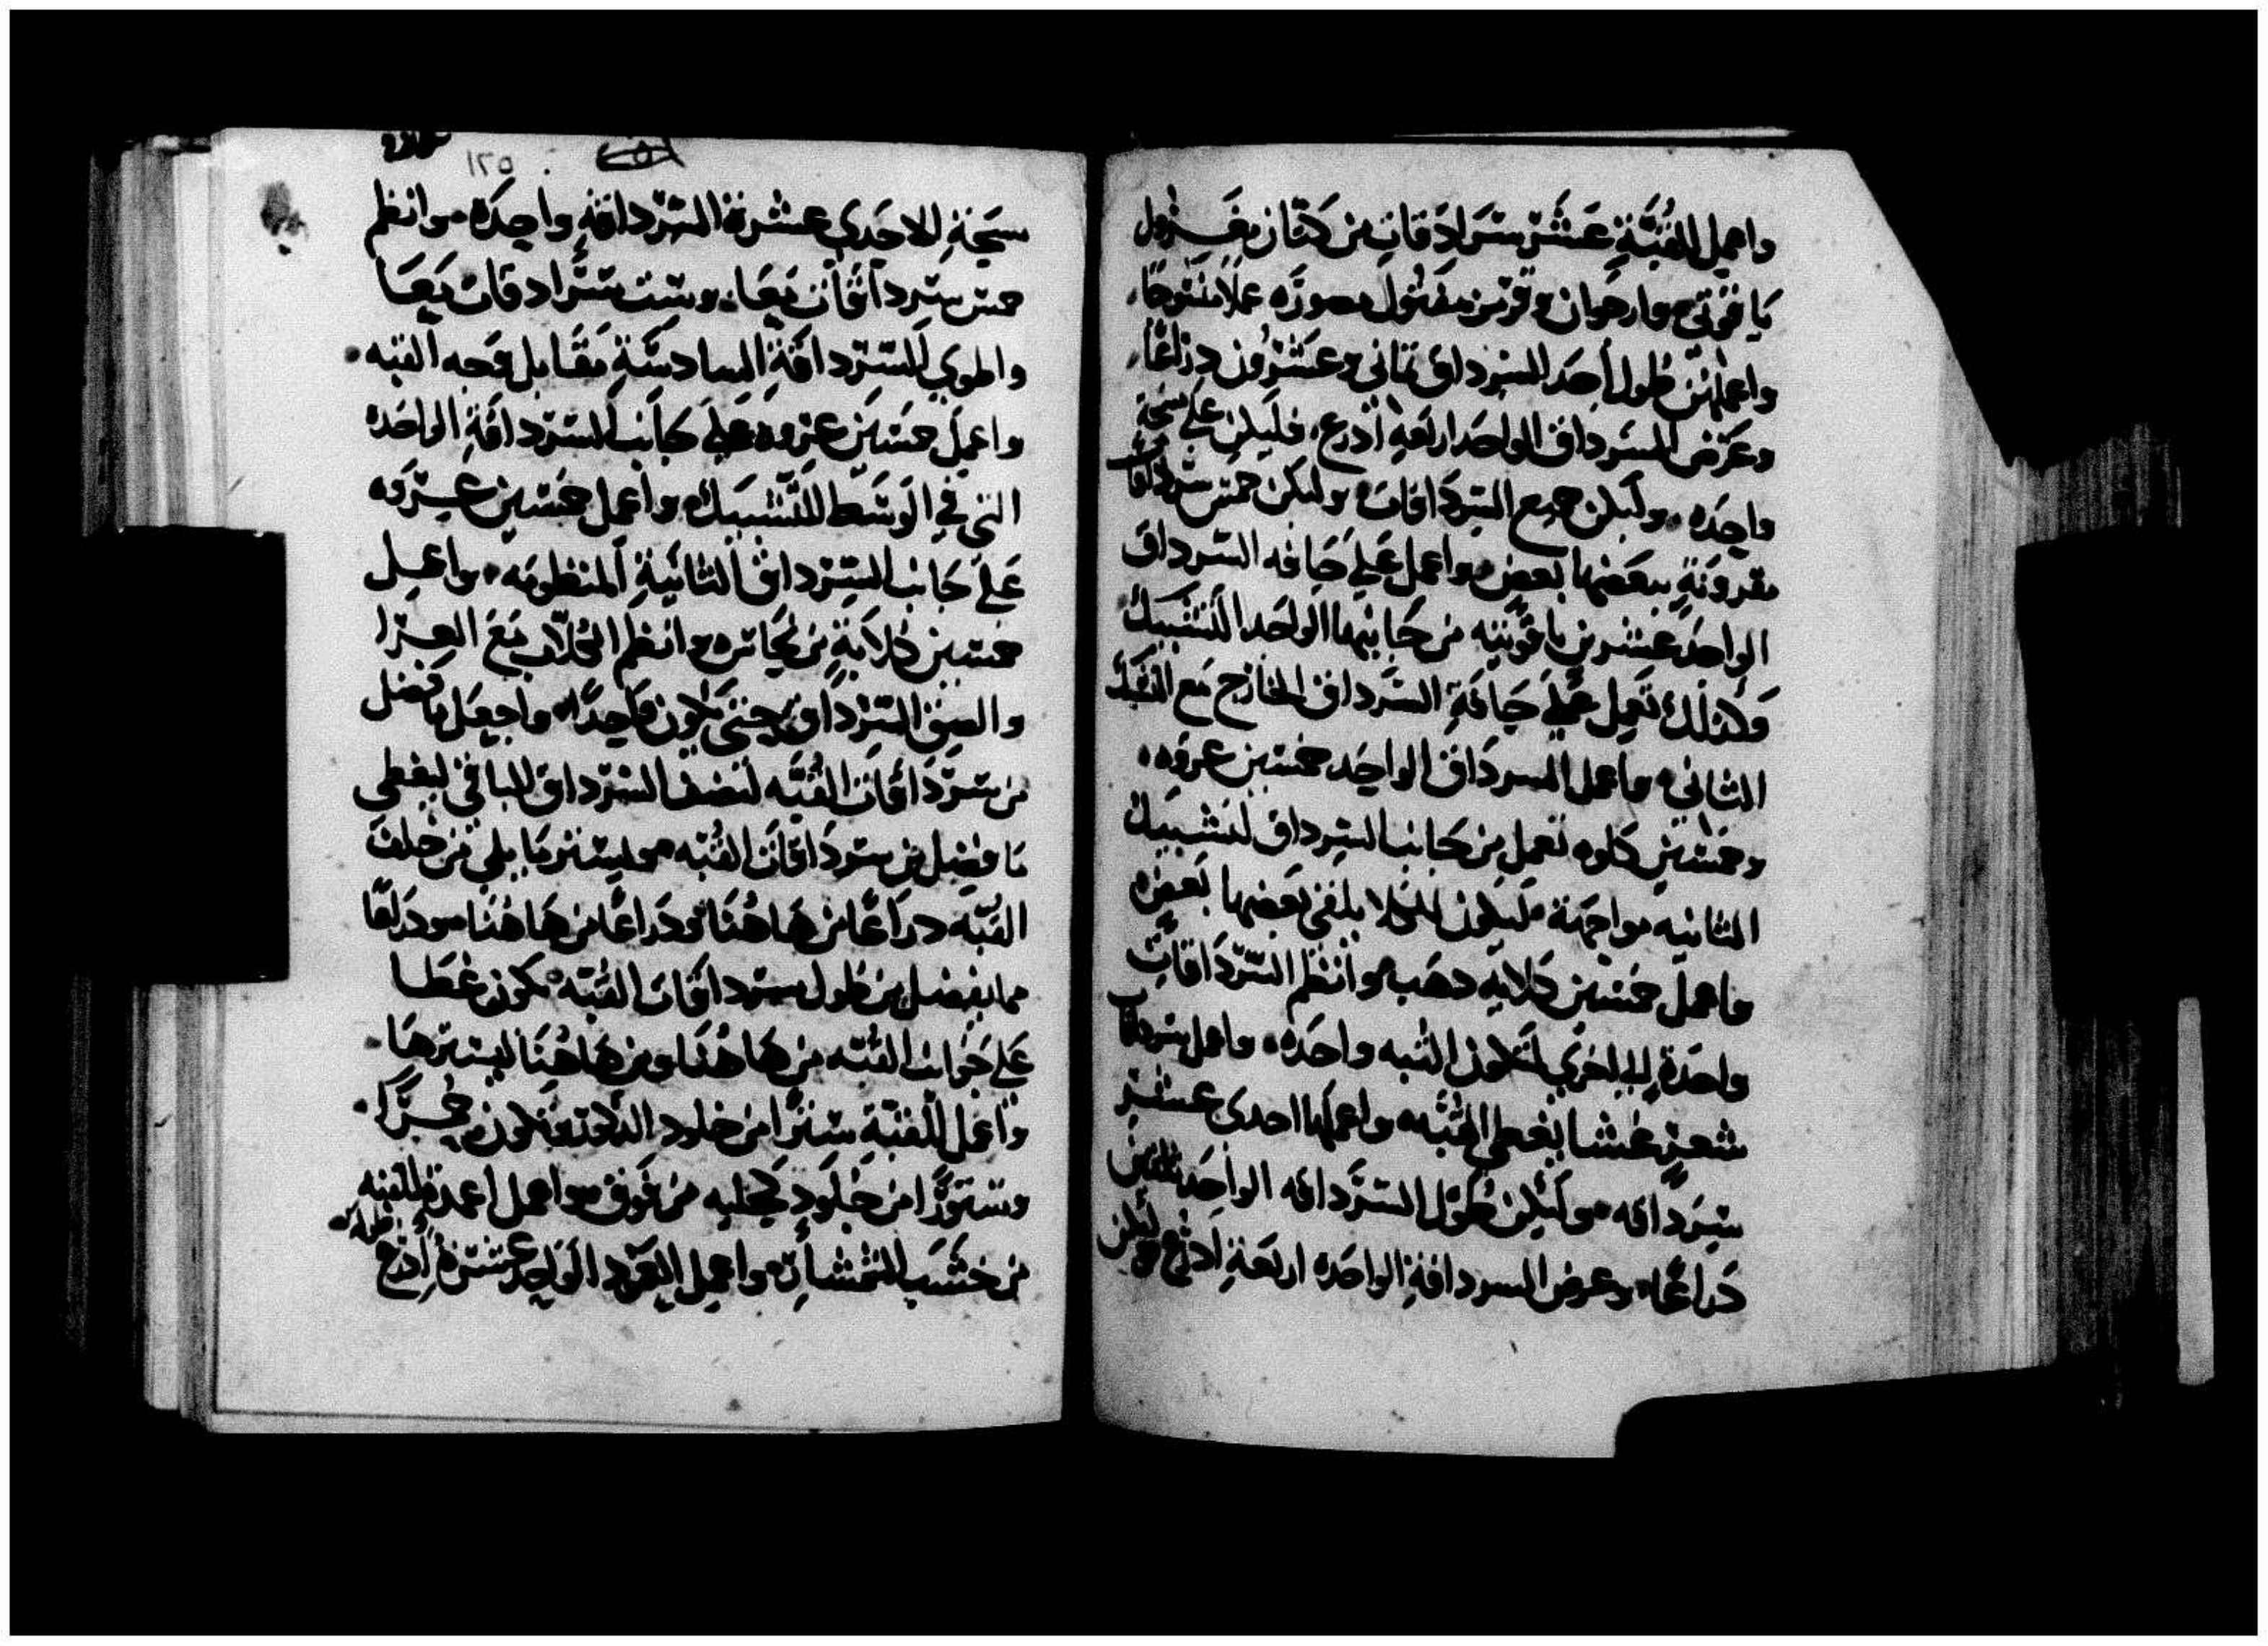 واعمل القُبَّةِ عَشَرْ سَرَادَقَاتِ من كتَان مغَزول
يَاقوتى وارجوان وقرمز مفتول مصوره عملا منسَوجًا
واعمل من طُول أحَد السرداق تماني وعشرُون دراعًا
وعَرْض السرداق الواحَد اربَعَه أدرع فليكن على سَحَة
واحِده وليكن جميع السردَاقات وليكن خمس سرداقات
مقرونَةٍ ببعَضها بعض واعمل عَلى حَافه السرداق
الواحد عشرين ياقوتيه من جَانبها الواحَد التشبيك
وَكذلك تَعمل عَلى حَافةِ السَرداق الخارج مَع التشبك
الثاني واعمل السردَاق الواحِد خمسين عروه
وخمسين كلوه تعمل من جَانب السرداق لتشبيك
الثانيه مواجهَة لتكون الكلا يلقى بَعَضها بَعض
واعمل خمسين كلابه دهَب وانظم السّردَاقاتِ
واحدَة الى الاخري لتكون القبه واحَده واعمل سرداقات
شعر غشا يغطى القُبَّه واعملها احدى عشر
سِرَدَاقه وليكن طُول السرَّداقه الواحِد ثلثين
دَراعًا وعرض السرداقةِ الواحَده اربَعَةِ ادرُع وليكن
١٢٥
سَحَةِ للاحَدي عشرة السّرداقهِ واحِدَه وانظم
خمس سردَاقات مَعَا وست سَرادقات مَعَا
واطوي السّرداقَةِ السادسَةِ مقَابل وَجه القبه
واعمل خمسَين عروه عَلى جَانب السّردَاقةِ الواحَده
التي في الوَسَط للتشبيك واعمل خمسين عروه
عَلى جَانب السّرداق الثانيَةِ المنظومَه واعمل
خمسين كلابَةٍ من نحَاس وانظم الكلاب مَع العرا
والصِق السّردَاق حتى يكون واحِدًا واجعَل مَا فضل
من سردَاقات القُبَّه لنصف السّرداق الباقي ليغطى
مَا فضل من سردَاقات القُبّه وليسترمَا يلي من خلف
القبّه دراعًا من هَاهُنَا ودراعًا من هَاهُنَا
مما يفضل من طُول سرداقَات القُبَّه يكون غطَا
عَلى جَوانب القُبَّه من هَاهُنَا ومن هَاهُنَا ليسترهَا
واعمل للقبَّةِ سترًا من جلود
وستورًا من جُلودٍ من فوق واعمل اعمدة للقبه
من خشَب الشمشار واعمل العمود الواحد عشرةُ أدرع طولا